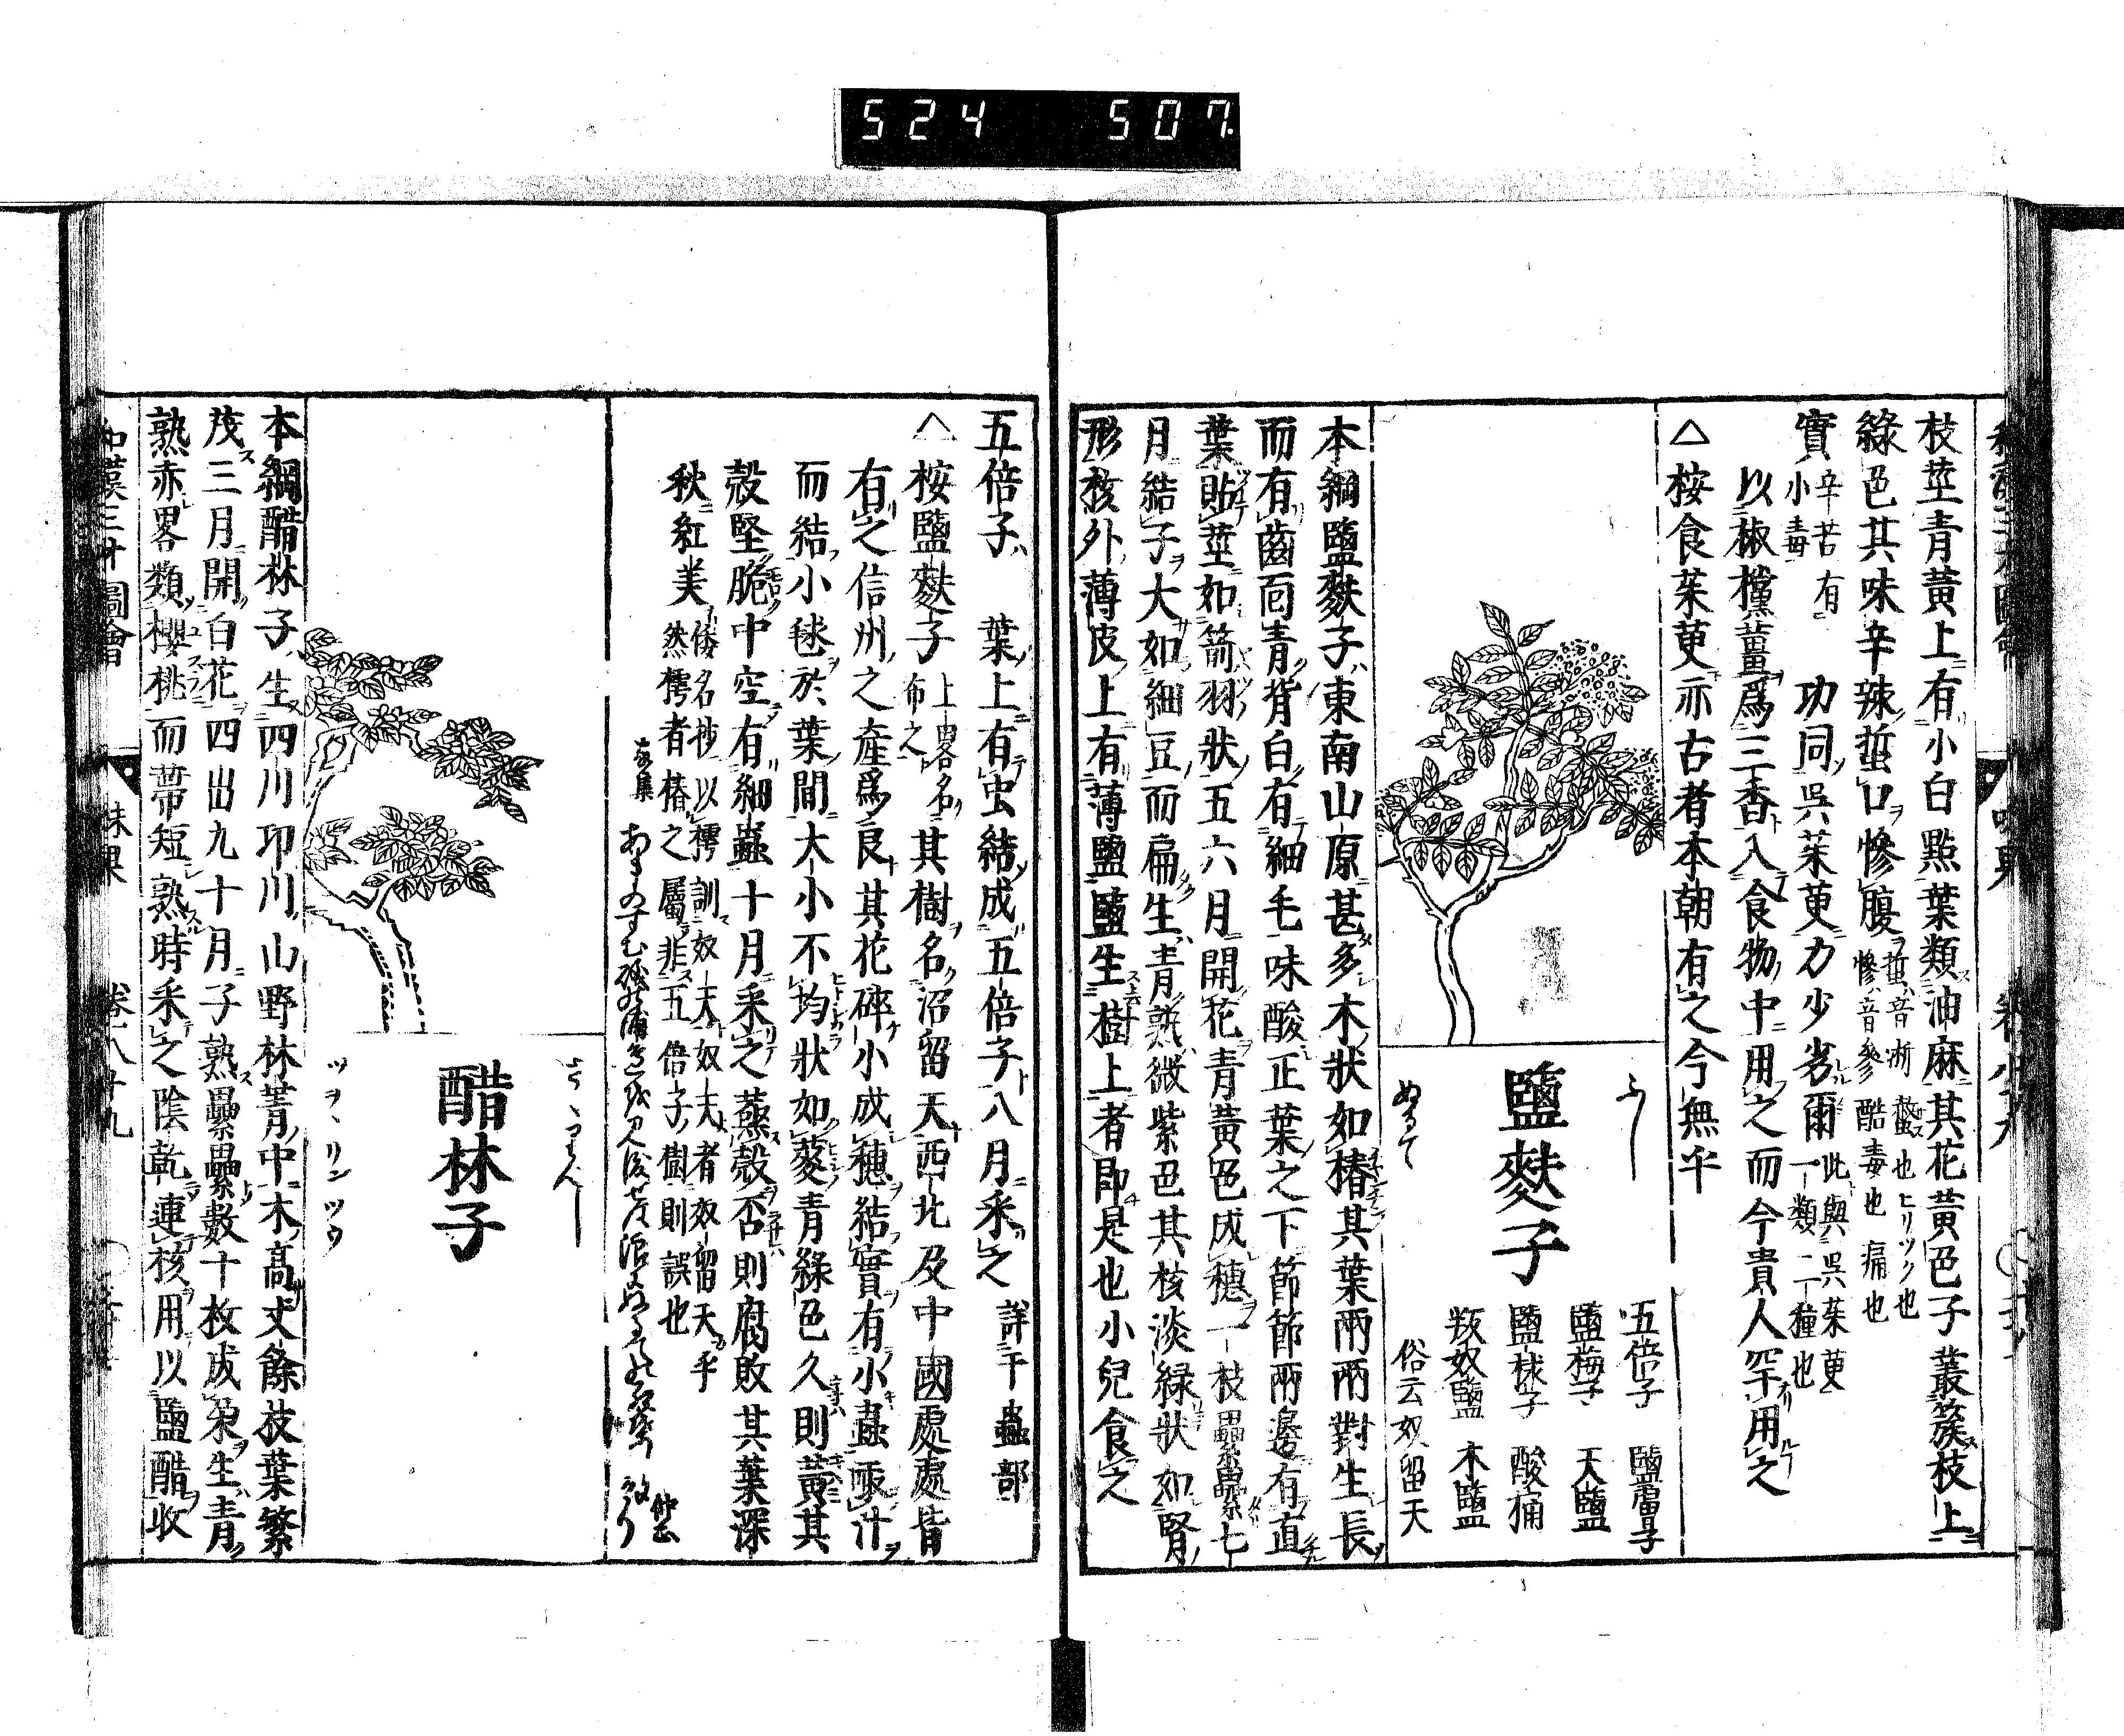 524 507.
枝莖青黃上有小白點葉類油麻其花黃色子叢簇枝上
綠色其味辛辣蜇口慘腹 蜇音浙螫也ヒリツク也
慘音參酷毒也痛也
實 辛苦有
小毒
功同吳茱萸力少劣爾 此與吳茱萸
一類二種也
以椒欓薑爲三香入食物中用之而今貴人罕用之
△按食茱萸亦古者本朝有之今無乎
ふし
鹽麩子
ぬるて
五倍子 鹽膚子
鹽梅子 天鹽
鹽梂子 酸桶
叛奴鹽 木鹽
俗云奴留天
本綱鹽麩子東南山原甚多木狀如椿其葉兩兩對生長
而有齒面青背白有細毛味酸正葉之下節節兩邊有直
葉貼莖如箭羽狀五六月開花青黃色成穗一枝纍纍七
月結子大如細豆而扁生青熟微紫色其核淡綠狀如腎
形核外薄皮上有薄鹽鹽生樹上者即是也小兒食之
五倍子 葉上有虫結成五倍子八月采之 詳于蟲部
△按鹽麩子 上畧名
布之
其樹名沼留天西北及中國處處皆
有之信州之產爲良其花碎小成穗結實有小蟲吸汁
而結小毬於葉間大小不均狀如菱青綠色久則黃其
殼堅脆中空有細蟲十月采之蒸殼否則腐敗其葉深
秋紅美 倭名抄以樗訓奴天奴天者奴留天乎
然樗者椿之屬非五倍子樹則誤也
醋林子
ツヲヽリンツウ
本綱醋林子生四川卭川山野林菁中木高丈餘枝葉繁
茂三月開白花四出九十月子熟纍纍數十枚成朶生青
熟赤畧類櫻桃而蒂短熟時采之陰乾連核用以鹽醋收